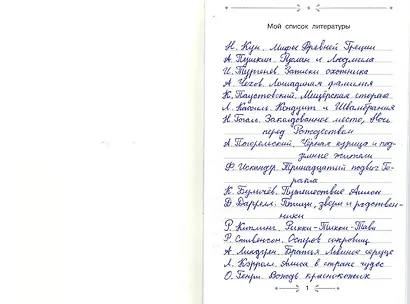 Мой список литературы
Н. Кун. Мифы Древней Греции
А. Пушкин. Руслан и Людмила
И. Тургенев. Записки охотника
А. Чехов. Лошадиная фамилия
К. Паустовский. Мещёрская сторона
Л. Кассиль. Кондуит и Швамбрания
Н. Гоголь. Заколдованное место, Ночь
перед Рождеством
А. Погорельский. Чёрная курица и под
земные жители
Ф. Искандер. Тринадцатый подвиг Ге-
ракла
К. Булычёв. Путешествие Алисы
Д. Даррелл. Птицы, звери и родствен-
ники
Р. Киплинг. Рикки-Тикки-Тави
Р. Стивенсон. Остров сокровищ
А. Линдгрен. Братья Львиное сердце
Л. Кэррол. Алиса в стране чудес
О. Генри. Вождь краснокожих
1